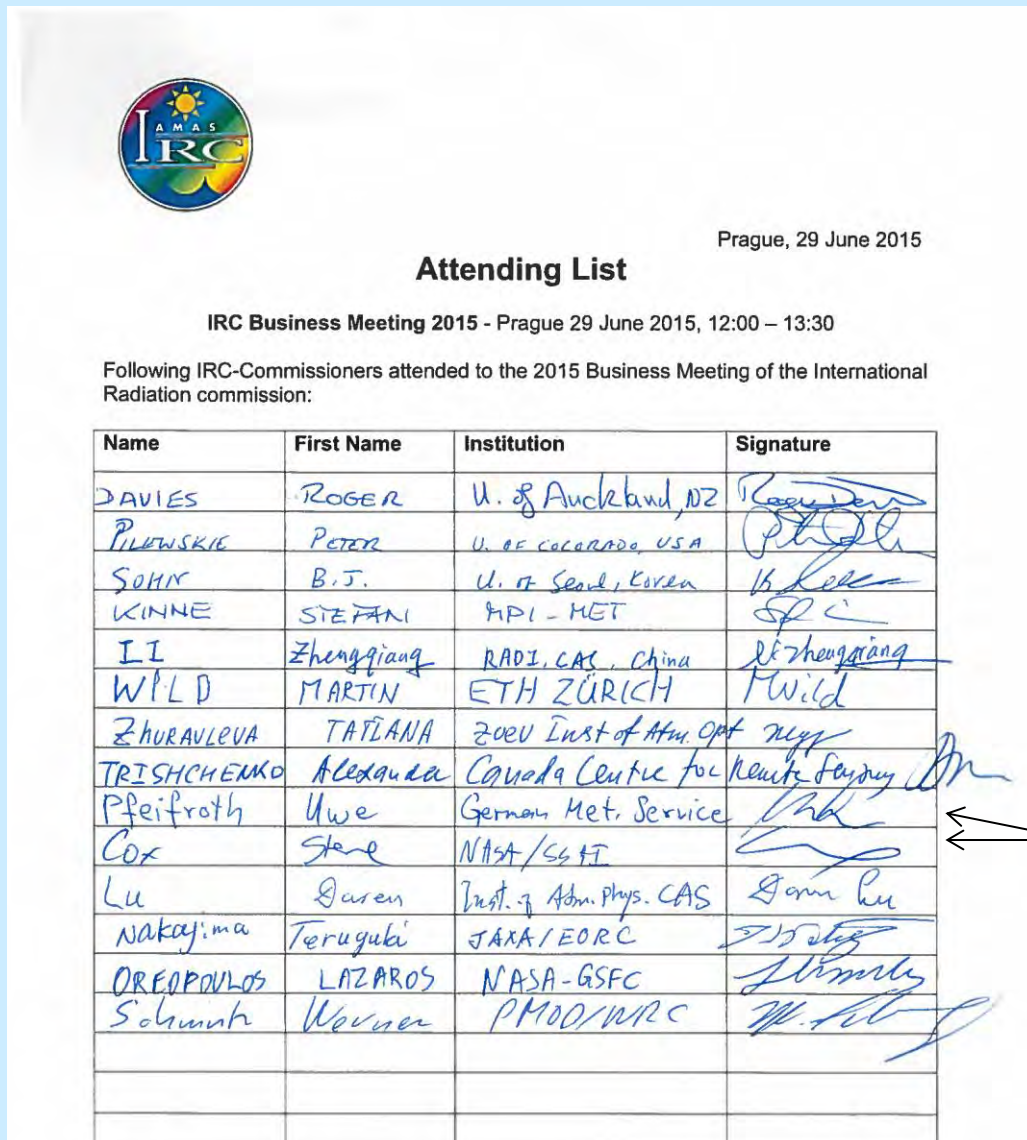 IAMAS
IRC
Prague, 29 June 2015
Attending List
IRC Business Meeting 2015 - Prague 29 June 2015, 12:00 – 13:30
Following IRC-Commissioners attended to the 2015 Business Meeting of the International
Radiation commission:
Name First Name Institution Signature
DAVIES ROGER U. of Auckland, NZ Roger Davies
PILEWSKIE PETER U. OF COLORADO, USA
SOHN B.J. U. of Seoul, Korea
KINNE STEFAN MPI-MET
LI Zhengqiang RADI, CAS, China Li Zhengqiang
WILD MARTIN ETH ZÜRICH MWild
ZHURAVLEVA TATIANA Zuev Inst of Atm. Opt
TRISHCHENKO Alexander Canada Centre for Remote Sensing
Pfeifroth Uwe German Met. Service
Cox Steve NASA/SSAI
Lu Daren Inst. of Atm. Phys. CAS Daren Lu
Nakajima Teruyuki JAXA/EORC
OREOPOULOS LAZAROS NASA-GSFC
Schmutz Werner PMOD/WRC